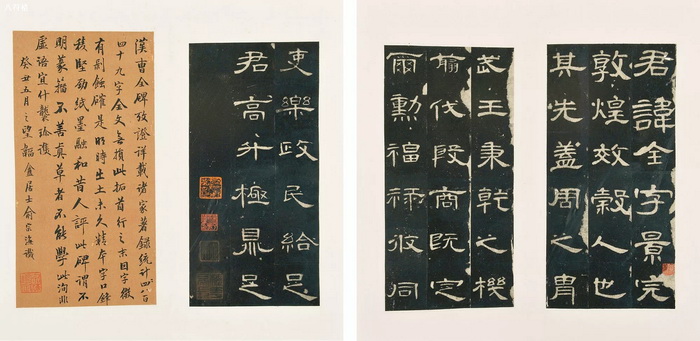 君諱全字景完
敦煌效穀人也
其先蓋周之冑
武王秉乾之機
翦伐殷商既定
爾勳福祿攸同
吏樂政民給足
君高升極鼎足
漢曹全碑攷證詳載諸家著錄統計八百
四十九字全文無損此拓首行之末因字微
有剝蝕確是明時出土未久精本字口鋒
稜堅勁紙墨融和昔人評此碑謂不
明篆籀不善真草者不能學此洵非
虛語宜什襲珍護
癸丑五月之望韜盦居士俞宗海識